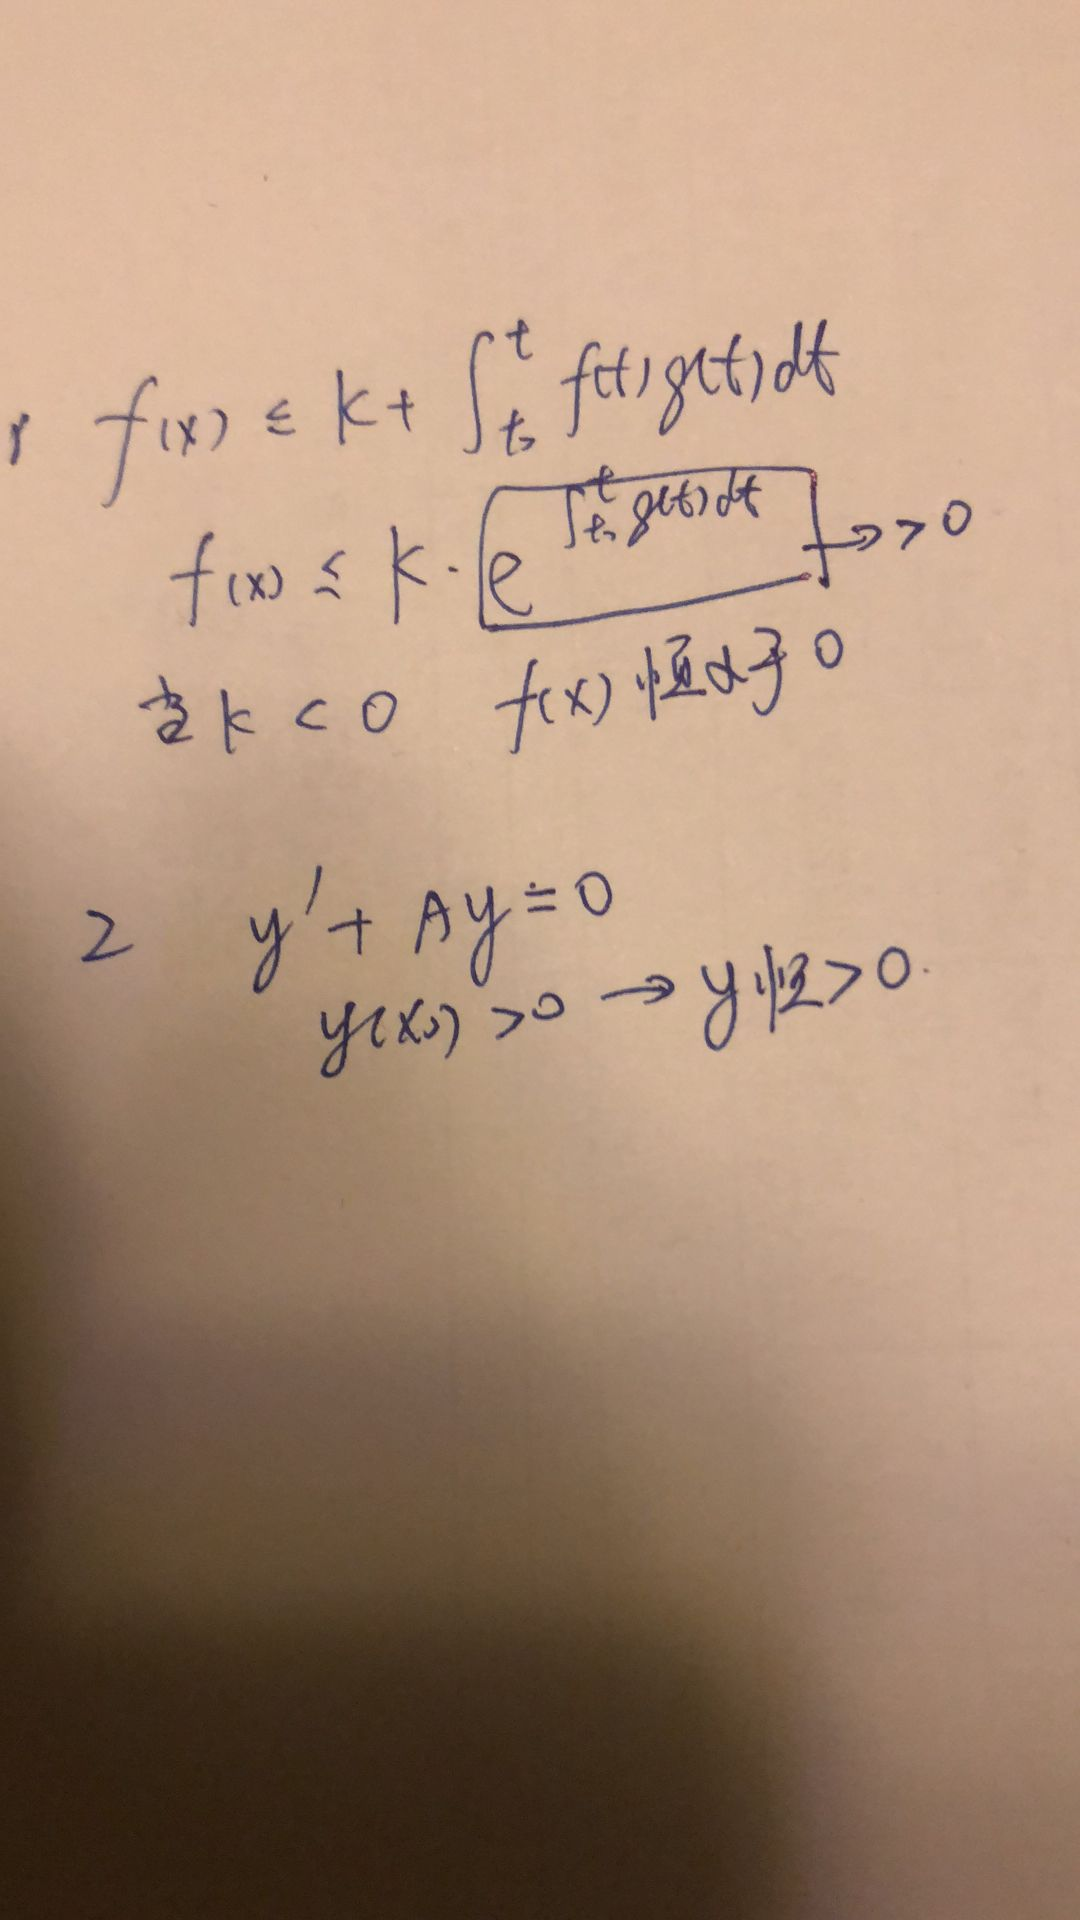 1 f(x) ≤ k + ∫_{t₀}^{t} f(t) g(t) dt
f(x) ≤ k · e^{∫_{t₀}^{t} g(t) dt} → > 0
当 k < 0 f(x) 恒 于 0
2 y' + Ay = 0
y(x₀) > 0 → y 恒 > 0.